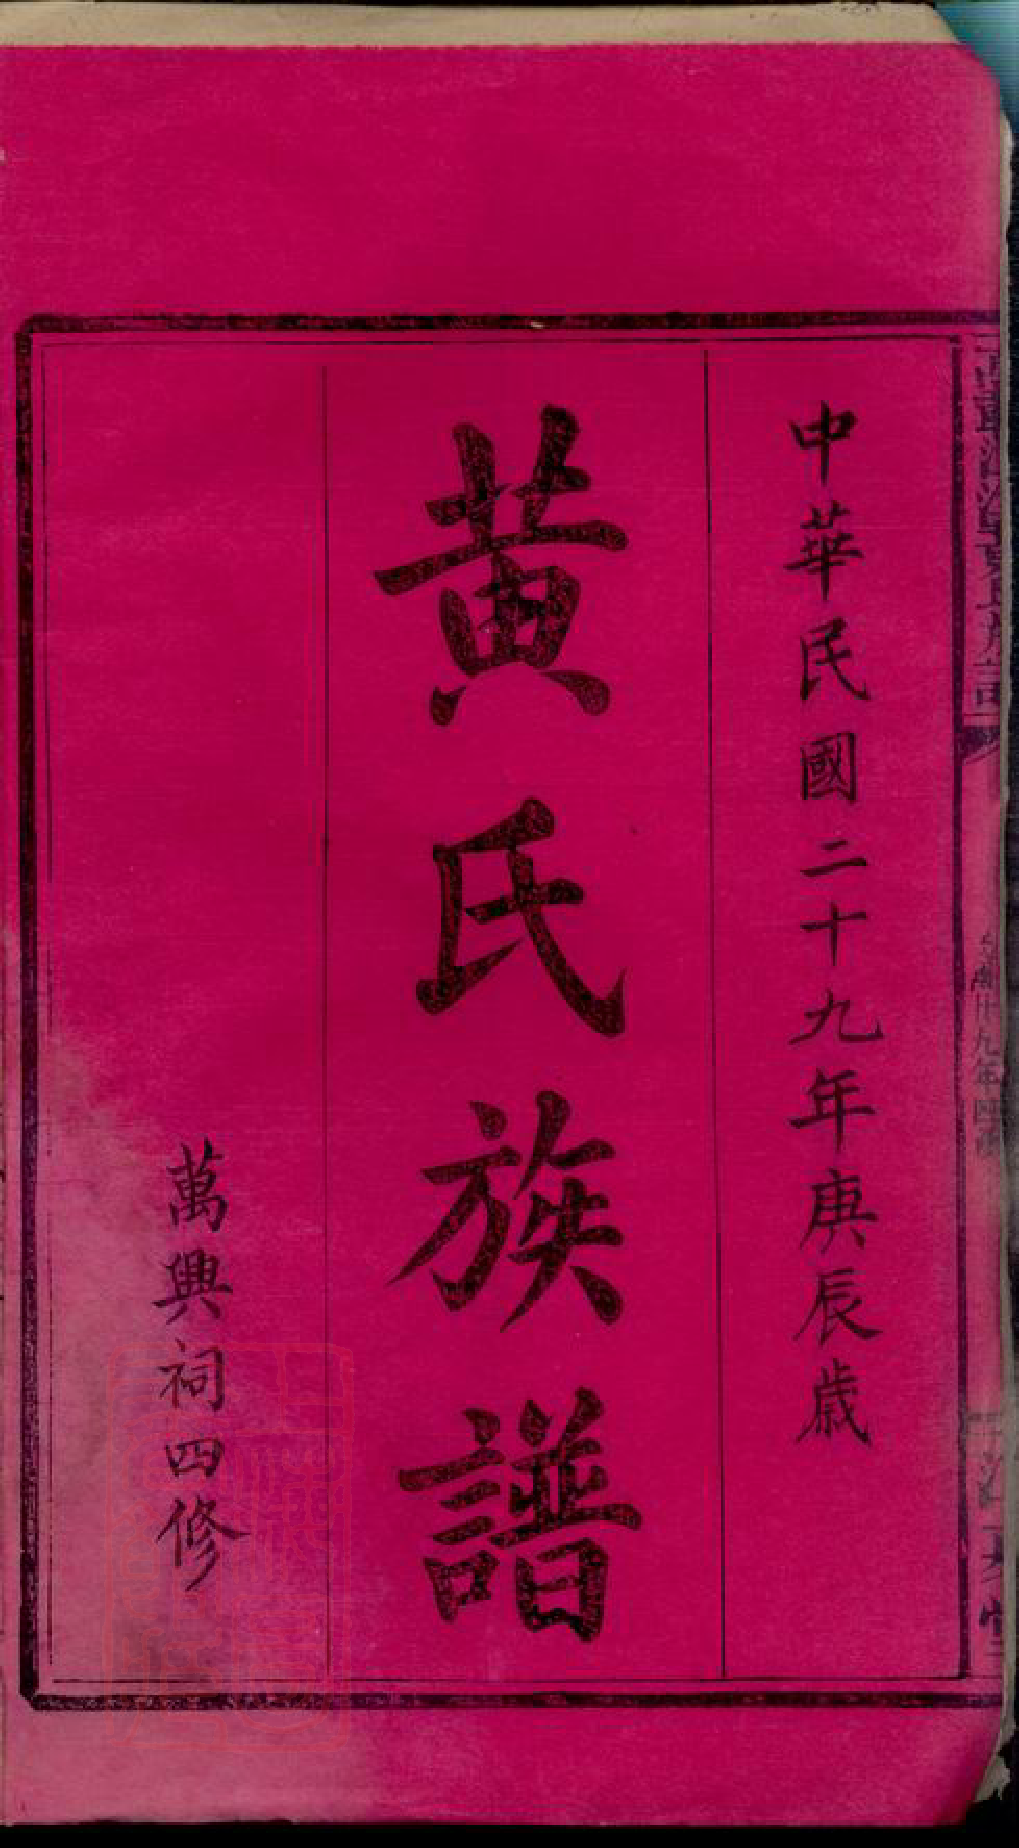 中華民國二十九年庚辰歲
黃氏族譜
萬興祠四修